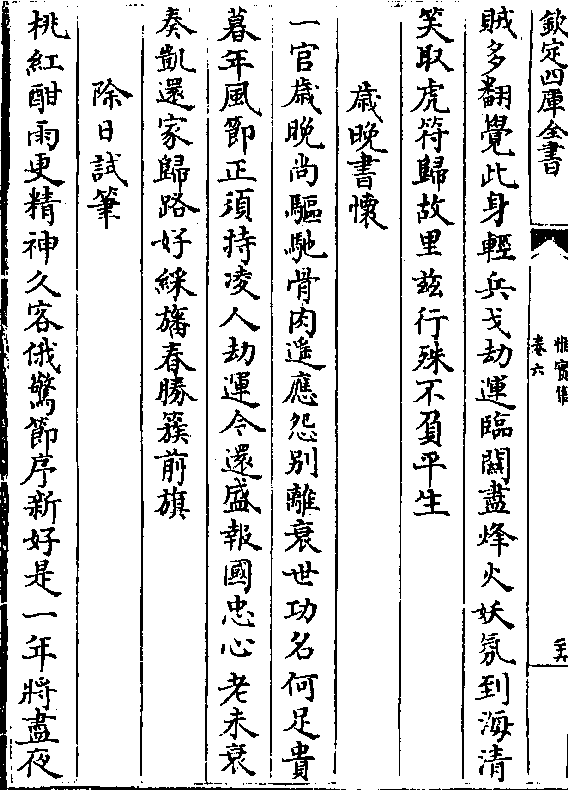 欽定四庫全書
惟實集
卷六
賊多翻覺此身輕兵戈劫運臨關盡烽火妖氛到海清
笑取虎符歸故里兹行殊不負平生
歳晚書懷
一官歳晚尚驅馳骨肉遥應怨别離衰世功名何足貴
暮年風節正須持凌人劫運今還盛報國忠心老未衰
奏凱還家歸路好綵旛春勝簇前旗
除日試筆
桃紅酣雨更精神久客俄驚節序新好是一年將盡夜